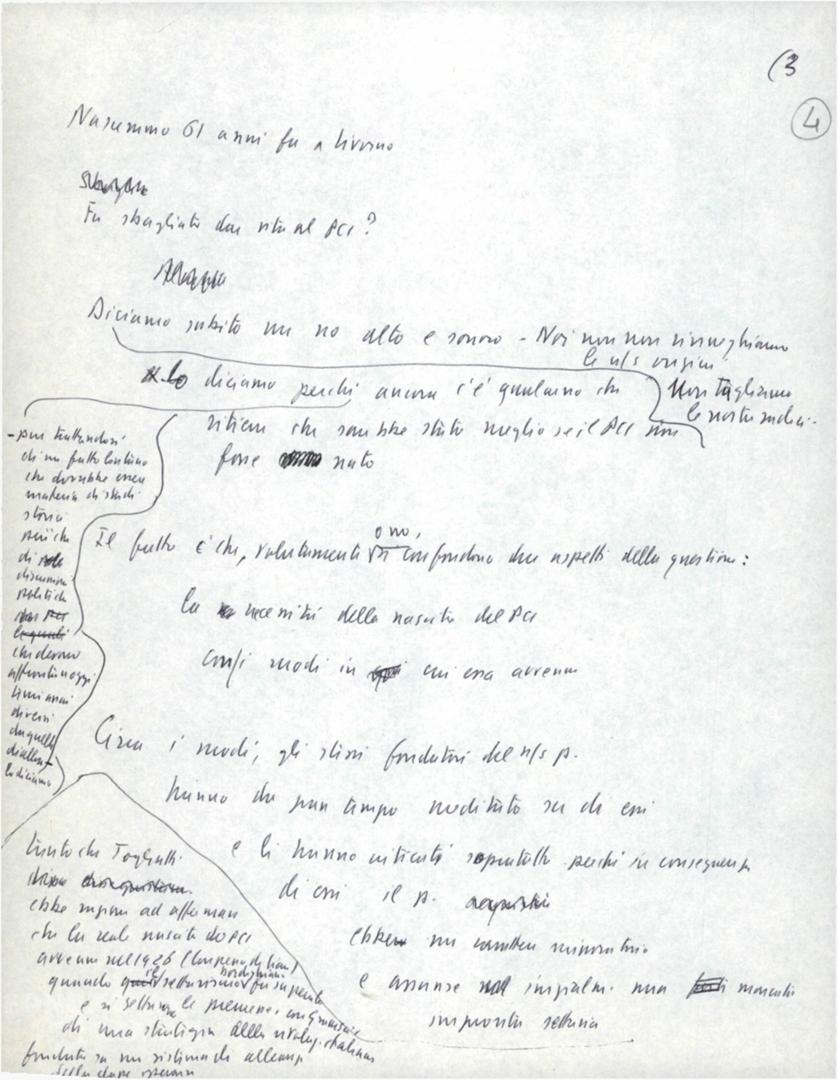 (3
4
Nascemmo 61 anni fa a Livorno
Fu sbagliato dar vita al PCI?
Diciamo subito un no alto e sonoro - Noi non
le n/s origini
Non tagliamo
le nostre radici.
lo diciamo perché ancora c'è qualcuno che
ritiene che sarebbe stato meglio se il PCI non
fosse nato
- pur trattandosi
di un fatto lontano
che dovrebbe essere
materia di studi
storici
più che
di
discussioni
politiche
che devono
affrontare oggi
temi assai
diversi
da quelli
di allora -
lo diciamo
Il fatto è che, volutamente o no, si confondono due aspetti della questione:
la necessità della nascita del PCI
con i modi in cui essa avvenne
Circa i modi, gli stessi fondatori del n/s p.
hanno da gran tempo meditato su di essi
e li hanno criticati soprattutto perché in conseguenza
di essi il p.
ebbe un carattere minoritario
e assunse una marcata
impronta settaria
tanto che Togliatti
ebbe ragione ad affermare
che la reale nascita del PCI
avvenne nel 1926 (Congresso di Lione)
quando il settarismo bordighiano fu superato
e si gettarono le premesse
di una strategia della rivoluz. italiana
fondata su un sistema di alleanze
della classe operaia